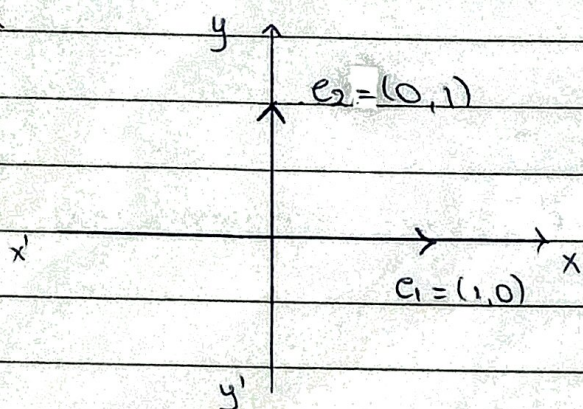 y
e₂ = (0, 1)
x'
x
e₁ = (1, 0)
y'